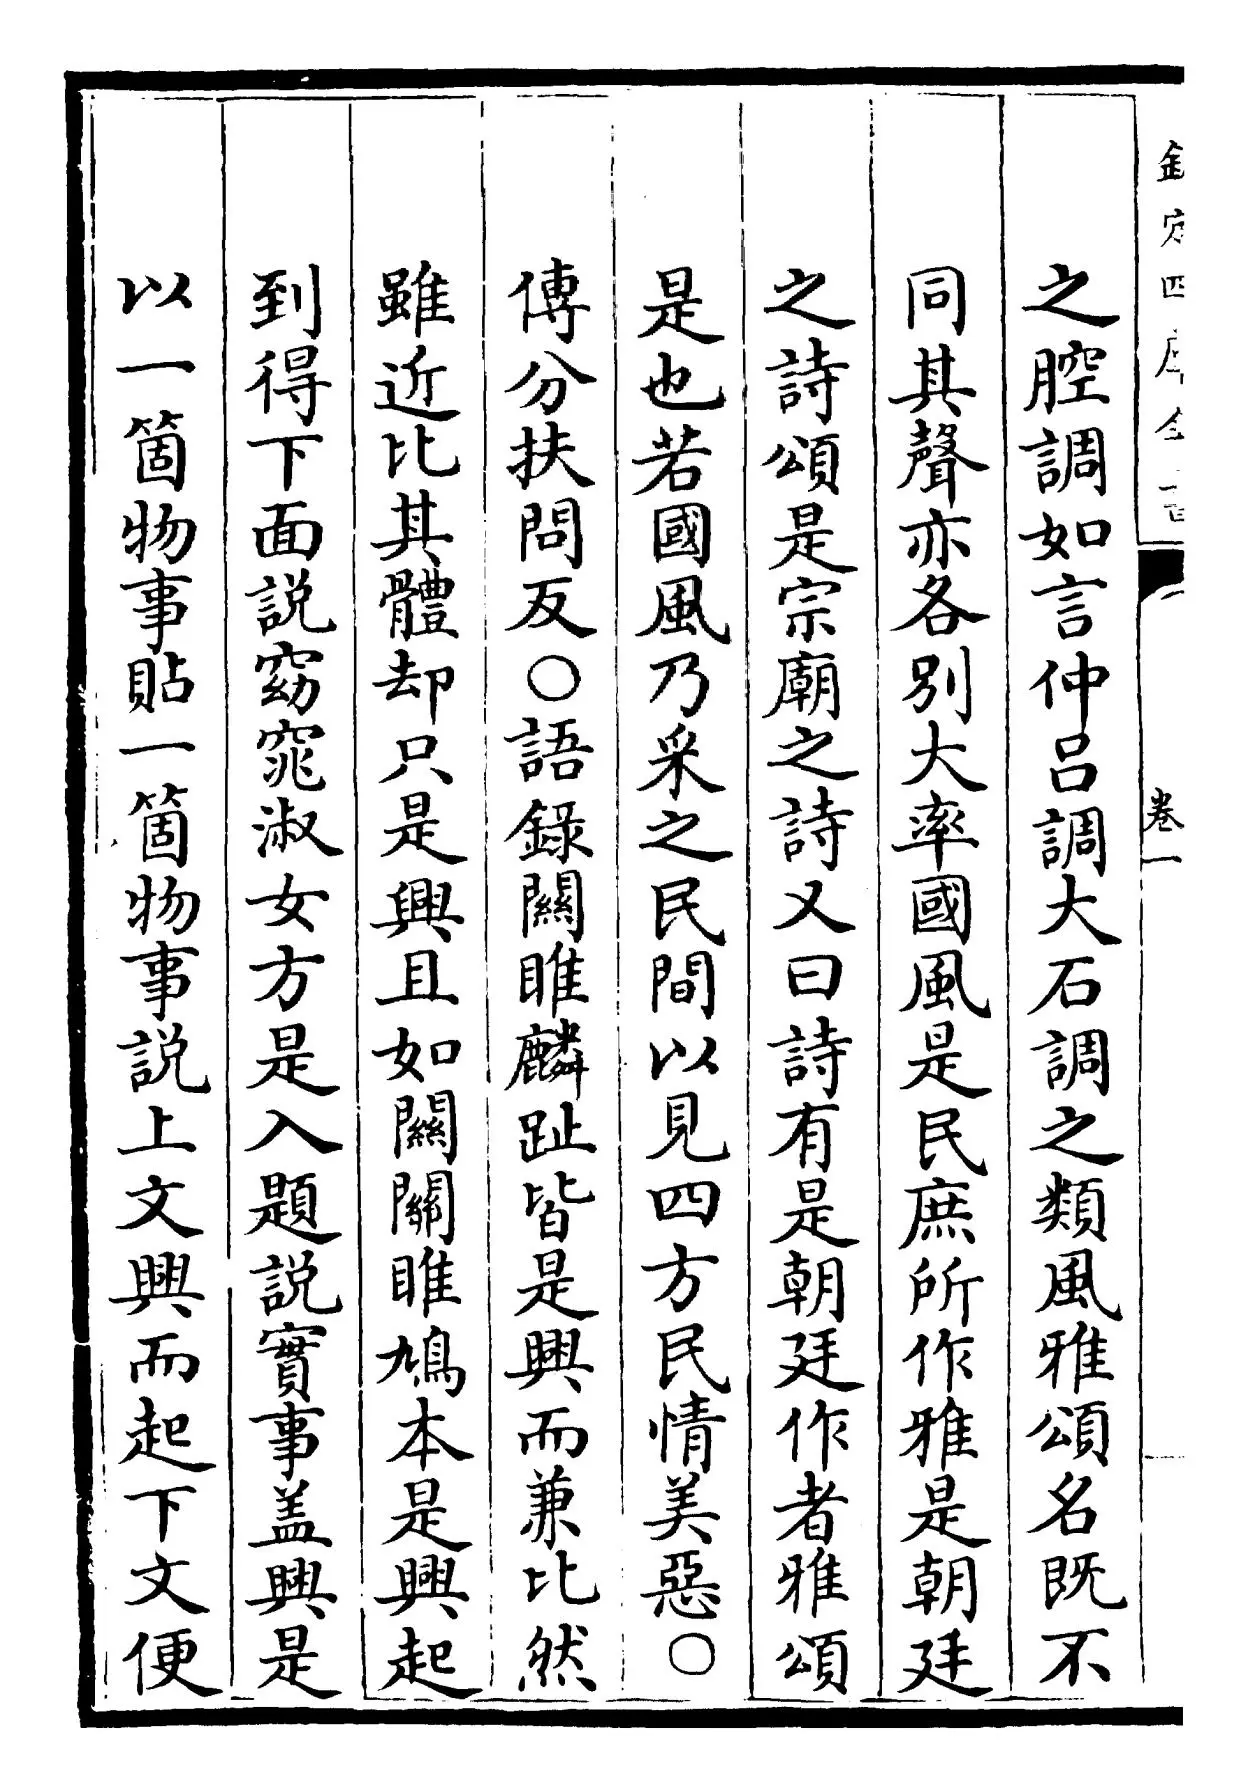 欽定四庫全書
卷一
之腔調如言仲呂調大石調之類風雅頌名既不
同其聲亦各别大率國風是民庶所作雅是朝廷
之詩頌是宗廟之詩又曰詩有是朝廷作者雅頌
是也若國風乃采之民間以見四方民情美惡〇
傅分扶問反〇語錄關雎麟趾皆是興而兼比然
雖近比其體却只是興且如關關雎鳩本是興起
到得下面説窈窕淑女方是入題説實事盖興是
以一箇物事貼一箇物事説上文興而起下文便